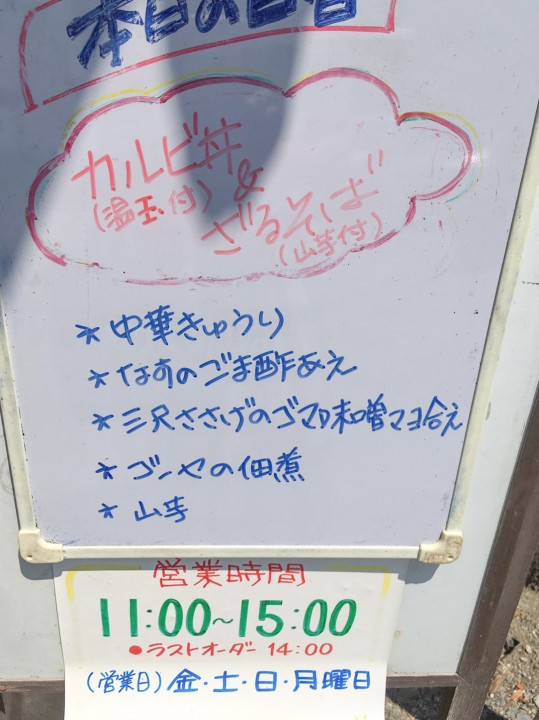 本日の日替
カルビ丼
(温玉付)
&
ざるそば
(山芋付)
* 中華きゅうり
* なすのごま酢あえ
* 三尺ささげのゴマ味噌マヨ合え
* ゴーヤの佃煮
* 山芋
営業時間
11:00~15:00
●ラストオーダー 14:00
(営業日) 金・土・日・月曜日